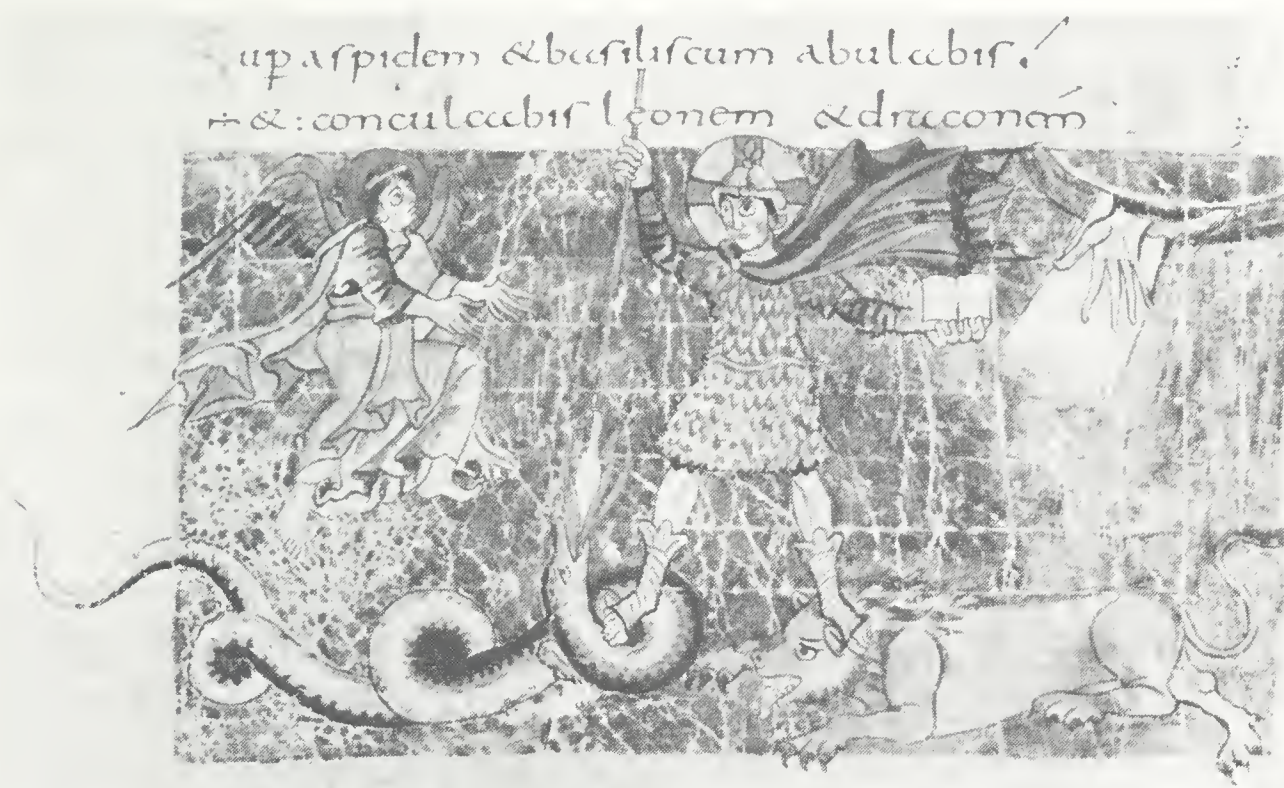 up aspidem & basiliscum abulabis.
÷ & : conculcabis leonem & draconem